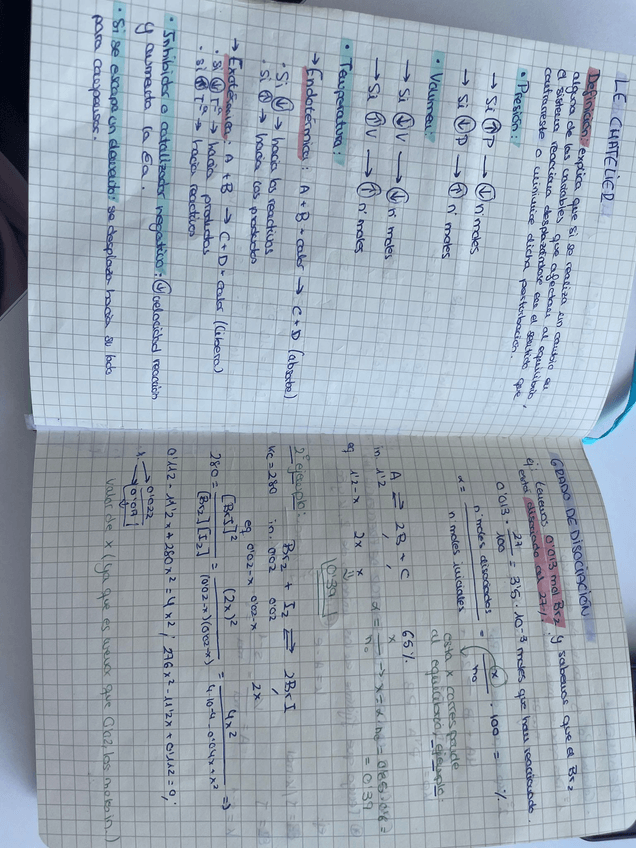 LE CHATELIER
Definición: explica que si se realiza un cambio en
alguna de las variables que afectan al equilibrio
el sistema reacciona desplazándose en el sentido que,
contrarreste o minimice dicha perturbación.
• Presión:
→ Si ↑ P → ↓ nº moles
→ Si ↓ P → ↑ nº moles
• Volumen:
→ Si ↑ V → ↓ nº moles
→ Si ↓ V → ↑ nº moles
• Temperatura:
→ Endotérmica: A + B + calor → C + D (absorbe)
• Si ↓ → hacia los reactivos
• Si ↑ → hacia los productos
→ Exotérmica: A + B → C + D + calor (libera)
• Si ↓ Tª → hacia productos
• Si ↑ Tª → hacia reactivos
• Inhibidor o catalizador negativo: ↓ velocidad reacción
y aumenta la Ea.
• Si se extrae un
se desplaza hacia su lado
para compensar.
GRADO DE DISOCIACIÓN
ej tenemos 0'013 mol Br2 y sabemos que el Br2
está disociado al 27%.
0'013 · 27/100 = 3'5 · 10-3 moles que han reaccionado
α = n moles disociados / n moles iniciales = x / n0 · 100 = %
esta x corresponde
al equilibrio, ejemplo:
A ⇌ 2B + C 65%
in 1'2
eq 1'2-x 2x x
α = x / n0 → x = α · n0 =
= 0'39
0'39
2º ejemplo: Br2 + I2 ⇌ 2BrI
Kc = 280 in. 0'02 0'02
eq 0'02-x 0'02-x 2x
280 = [BrI]2 / [Br2][I2] = (2x)2 / (0'02-x)(0'02-x) = 4x2 / 4·10-4 - 0'04x + x2 ⇒
0'112 - 11'2x + 280x2 = 4x2 ; 276x2 - 11'2x + 0'112 = 0 ;
x → 0'022
valor de x (ya que es menor que Co2 los molesin.)